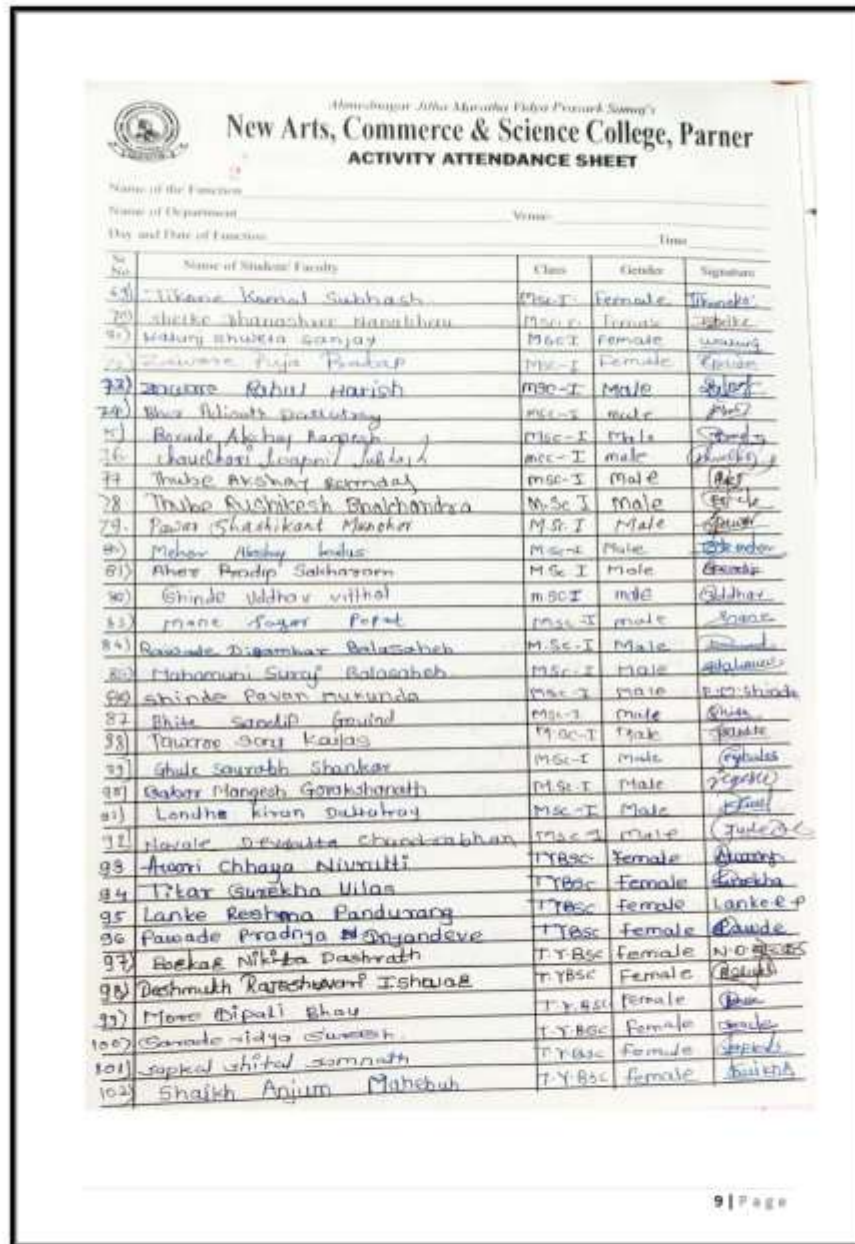 Ahmednagar Jilha Maratha Vidya Prasarak Samaj's
New Arts, Commerce & Science College, Parner
ACTIVITY ATTENDANCE SHEET
Name of the Function
Name of Department Venue
Day and Date of Function Time
Sr. No. Name of Student/ Faculty Class Gender Signature
69) Tikane Komal Subhash MSc-I Female
70) Shelke Dhanashree Nanabhau Female
71) shweta Sanjay MSc I Female
Zaware Puja Pratap MSc-I Female
73) Zaware Rahul Harish MSc-I Male
74) Dattatray MSc-I male
Borude Akshay MSc-I Male
76 Chaudhari MSc-I male
77 Thube Akshay msc-I Male
78 Thube Rushikesh Bhalchandra M.Sc I Male
79. Pawar Shashikant Manoher M Sc. I Male
80) Mehar Akshay M Sc-I Male
81) Aher Pradip Sakharam M Sc I Male
Shinde Uddhav vitthal m SC I male Uddhav
83) mane Sagar Popat MSc-I male
84) Rawade Digambar Balasaheb M.Sc-I Male
85) Mahamuni Suraj Balasaheb MSc-I Male
86) Shinde Pavan mukunda MSc-I Male P.M.Shinde
87 Bhite Sandip Govind MSc-I male
88) Kailas M.Sc-I Male
89) Ghule Saurabh Shankar M.Sc-I Male
90) Gabar Mangesh Gorakshanath M.Sc-I Male
91) Londhe Kiran Dattatray MSc-I Male
92) Navale Devdatta Chandrabhan MSc-I male
93 Awari Chhaya Nivrutti TYBSC Female
94 Tikar Surekha Vilas TYBSc Female Surekha
95 Lanke Reshma Pandurang TYBSc Female Lanke R P
96 Pawade Pradnya Dnyandeve TYBSc Female
97) Borkar Nikita Dashrath T.Y.BSc Female
98) Deshmukh Rajeshwari Ishwar T.YBSc Female
99) More Dipali Bhau T.Y.BSc Female
100) Garade vidya Suresh T.Y.BSc Female
101) Sapkal shital somnath T.Y.BSc Female
102) Shaikh Anjum Mahebub T.Y.BSc Female
9 | Page